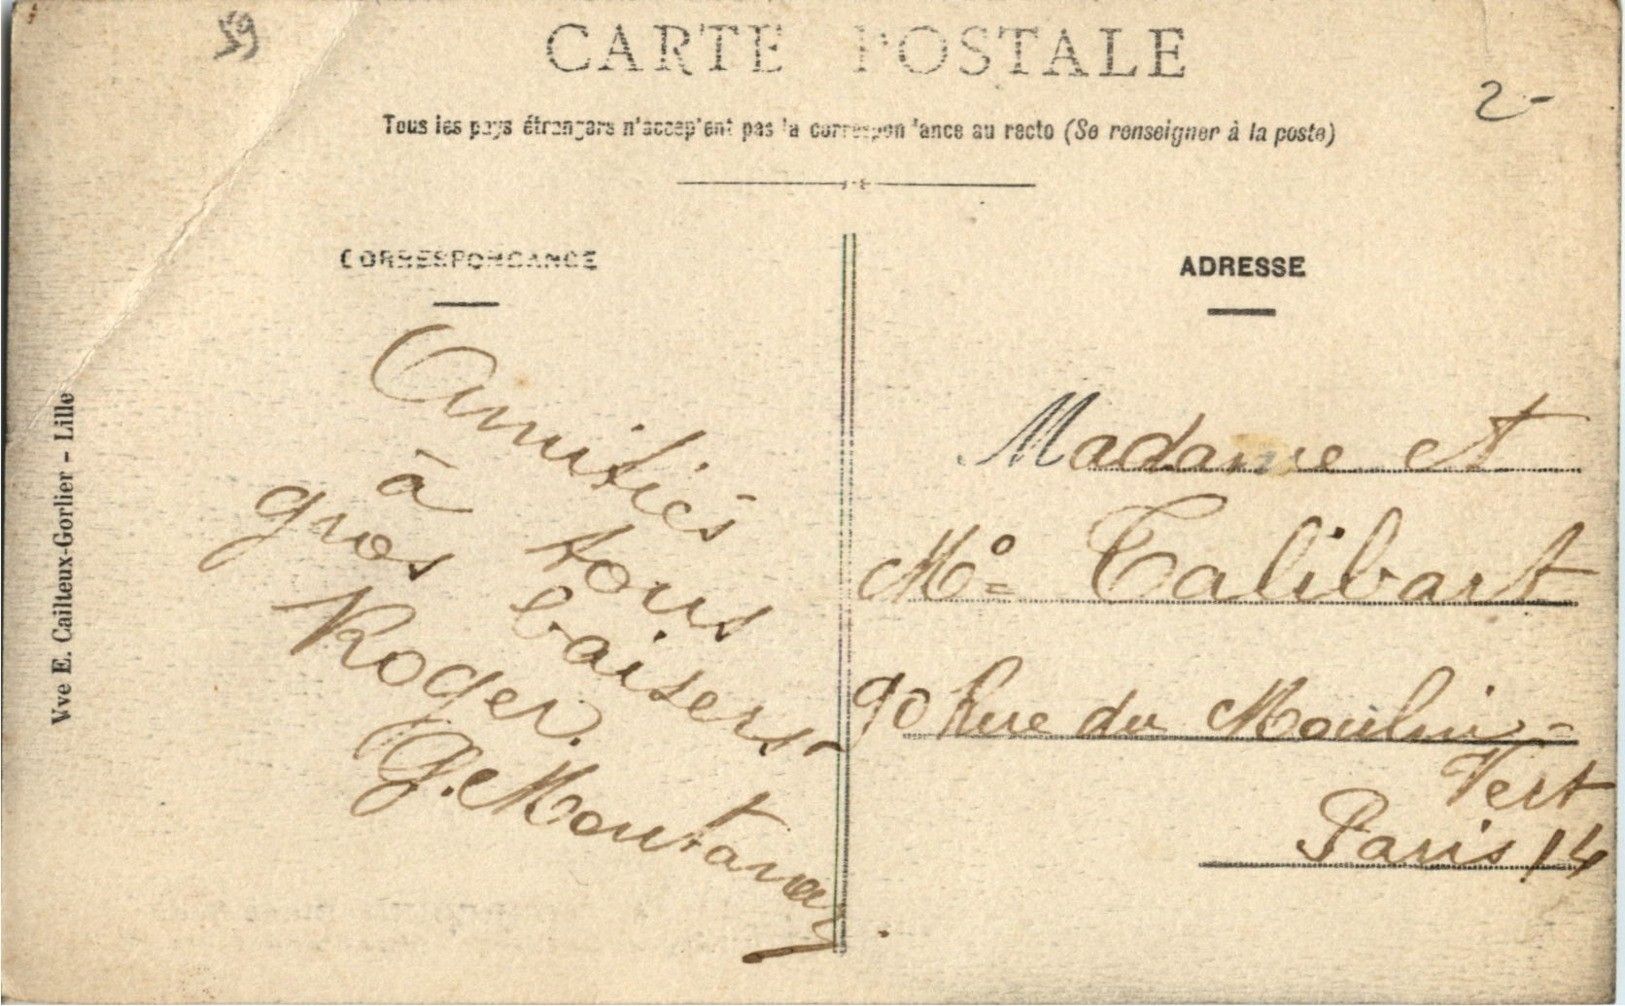 59
CARTE POSTALE
2-
Tous les pays étrangers n'acceptent pas la correspondance au recto (Se renseigner à la poste)
CORRESPONDANCE
Amitiés
à tous
gros baisers
Roger.
G. Montanay
Vve E. Cailteux-Gorlier - Lille
ADRESSE
Madame et
Mº Talibart
90 Rue du Moulin-
Vert
Paris 14